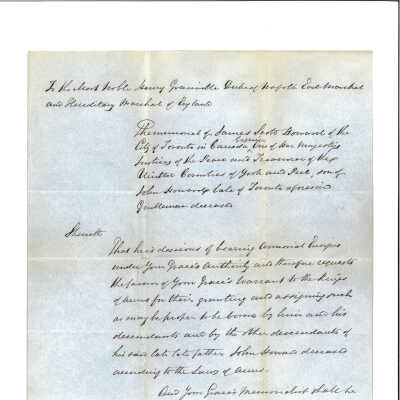 To the Most Noble Henry Granville Duke of Norfolk Earl Marshal
and Hereditary Marshal of England
The memorial of James Scott Howard of the
City of Toronto in Canada, Esquire One of Her Majesty's
Justices of the Peace and Treasurer of the
United Counties of York and Peel, son of
John Howard late of Toronto aforesaid
Gentleman deceased
Sheweth
That he is desirous of bearing Armorial Ensigns
under Your Grace's Authority and therefore requests
the favour of Your Grace's Warrant to the Kings
of Arms for their granting and assigning such
as may be proper to be borne by him and his
descendants and by the other descendants of
his said late father John Howard deceased
according to the Laws of Arms.
And Your Grace's Memorialist shall be